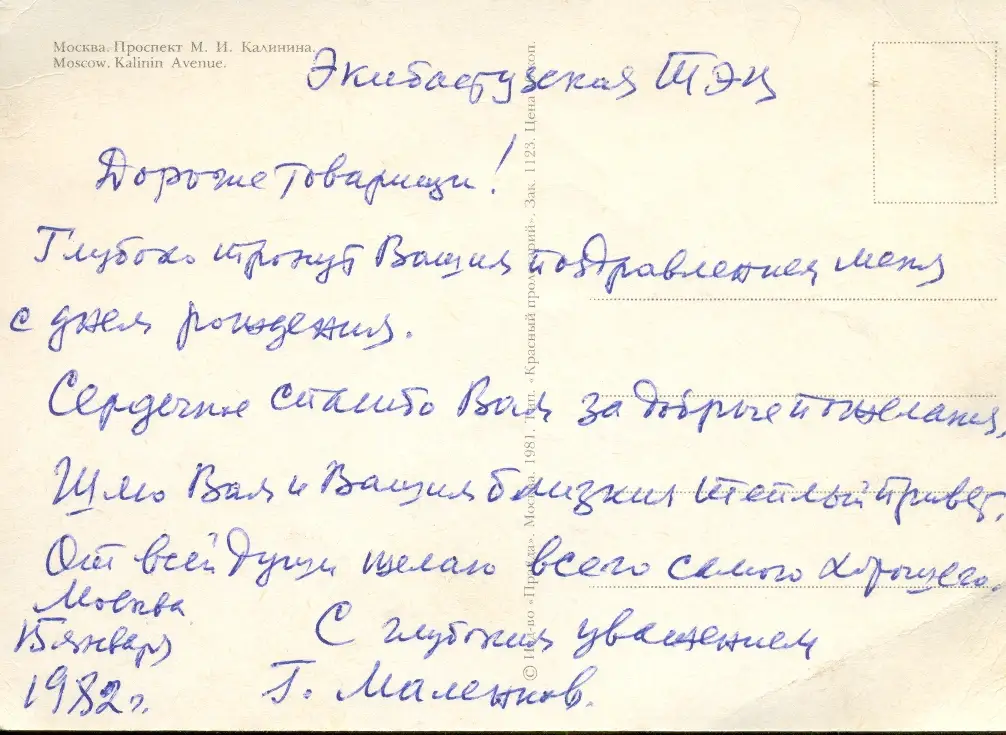 Москва. Проспект М. И. Калинина.
Moscow. Kalinin Avenue.
Экибастузская ТЭЦ
Дорогие товарищи!
Глубоко тронут Вашим поздравлением меня
с днем рождения.
Сердечное спасибо Вам за добрые пожелания.
Шлю Вам и Вашим близким теплый привет.
От всей души желаю всего самого хорошего.
Москва
15 января
1982 г.
С глубоким уважением
Г. Маленков.
© Изд-во «Правда». Москва. 1981. Тип. «Красный пролетарий». Зак. 1123. Цена коп.